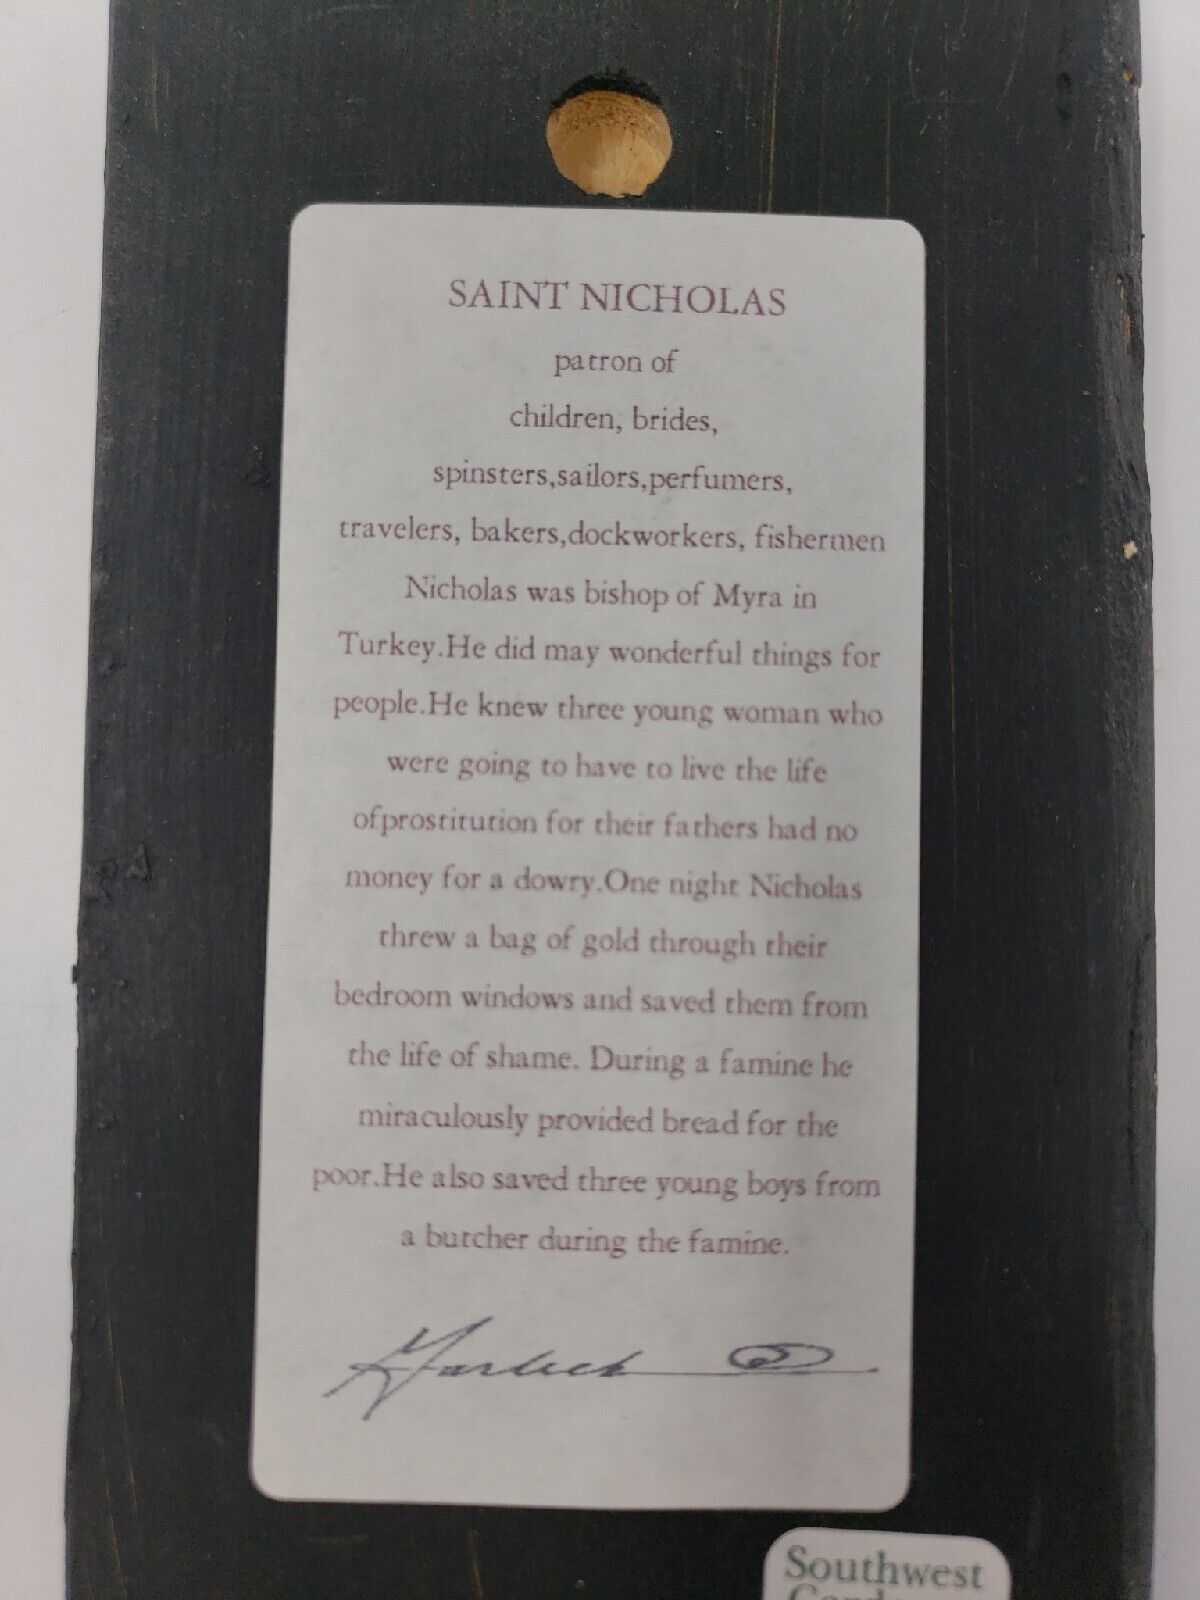 SAINT NICHOLAS
patron of
children, brides,
spinsters,sailors,perfumers,
travelers, bakers,dockworkers, fishermen
Nicholas was bishop of Myra in
Turkey.He did may wonderful things for
people.He knew three young woman who
were going to have to live the life
ofprostitution for their fathers had no
money for a dowry.One night Nicholas
threw a bag of gold through their
bedroom windows and saved them from
the life of shame. During a famine he
miraculously provided bread for the
poor.He also saved three young boys from
a butcher during the famine.
Southwest